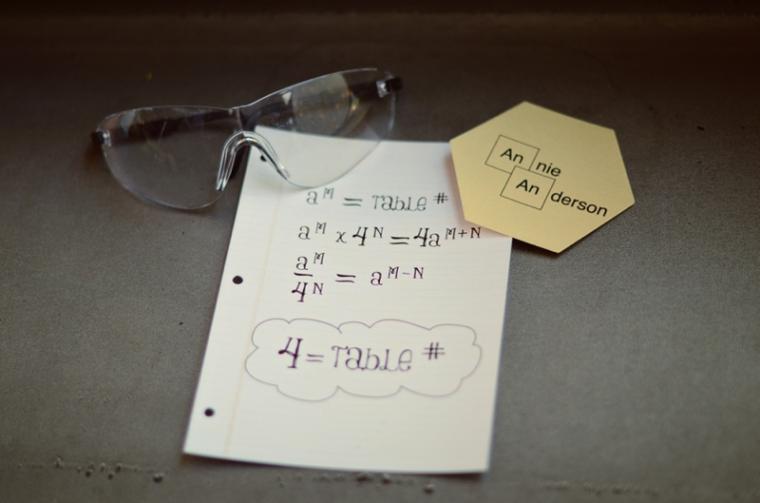 aᴹ = Table #
aᴹ x 4ᴺ = 4aᴹ⁺ᴺ
aᴹ
4ᴺ = aᴹ⁻ᴺ
4 = Table #
An nie
An derson